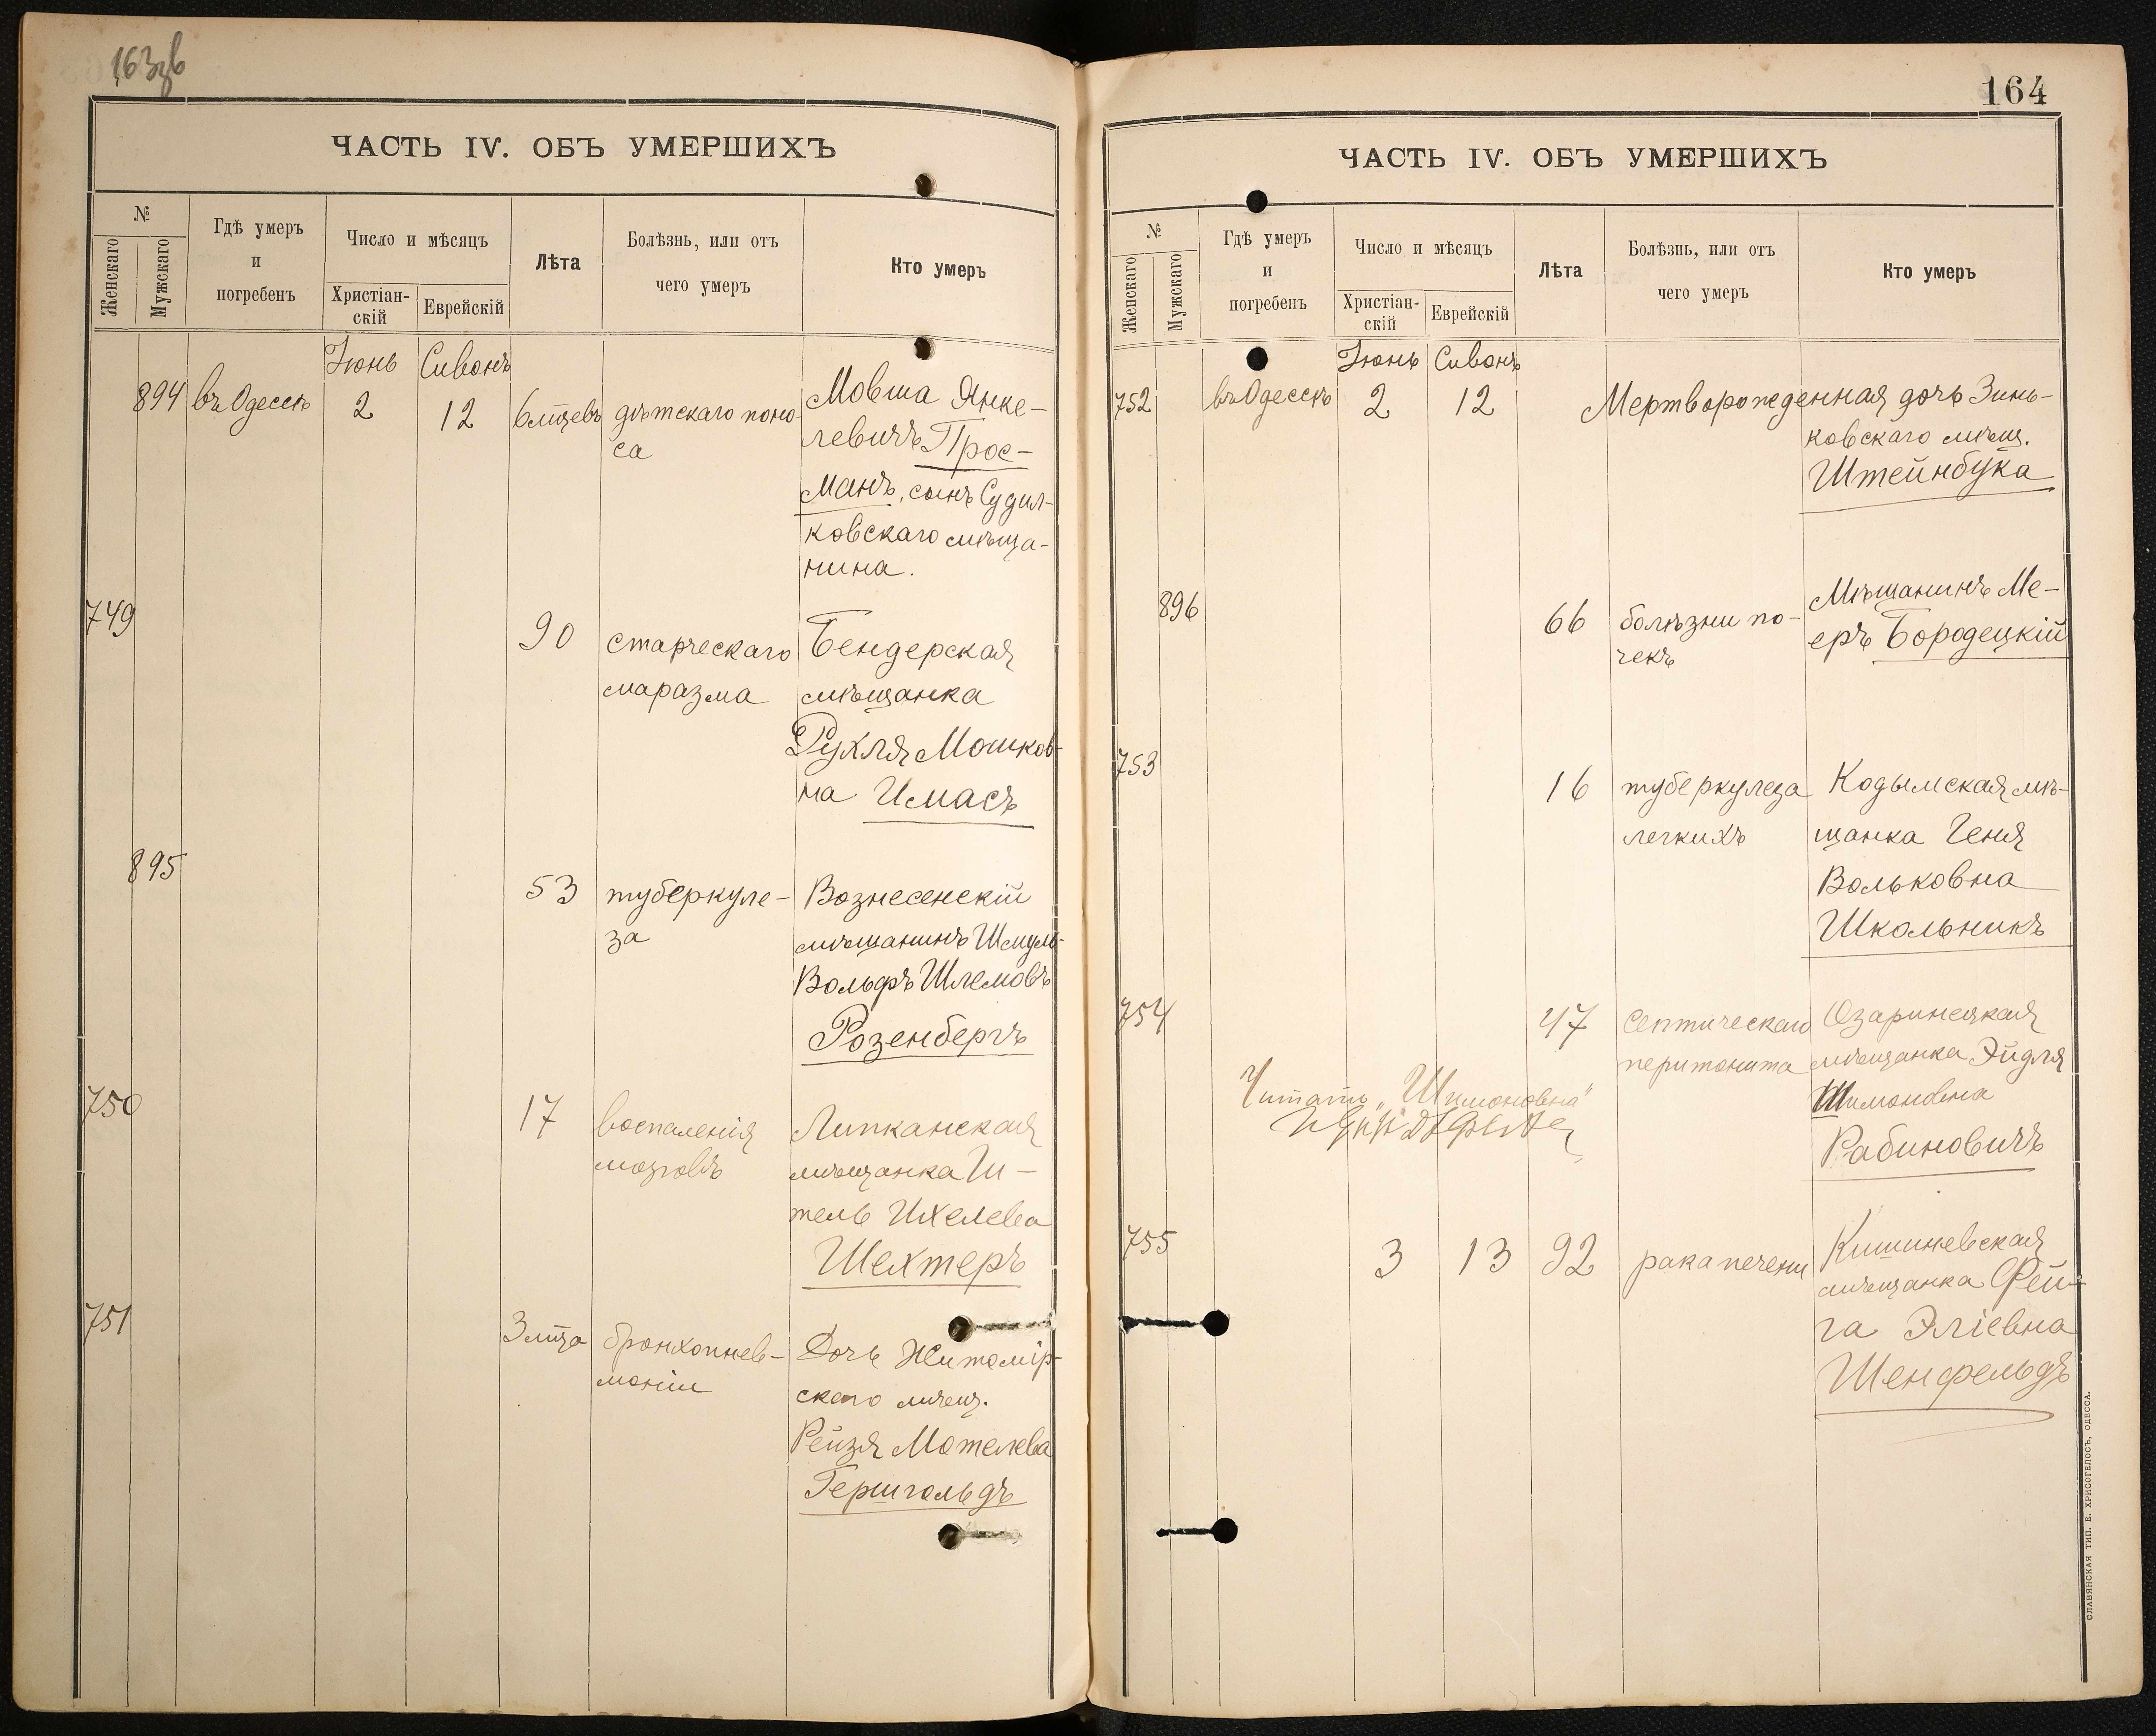 163об
ЧАСТЬ IV. ОБЪ УМЕРШИХЪ
№
Женскаго
Мужскаго
Гдѣ умеръ
и
погребенъ
Число и мѣсяцъ
Христіан-
скій
Еврейскій
Лѣта
Болѣзнь, или отъ
чего умеръ
Кто умеръ
Іюнь Сиванъ
894 въ Одессѣ 2 12 6 мцевъ дѣтскаго поно-
са
Мовша Янке-
левичъ Прос-
манъ, сынъ Судил-
ковскаго мѣща-
нина.
749
90
старческаго
маразма
Бендерская
мѣщанка
Рухля Мошков-
на Имасъ
895
53
туберкуле-
за
Вознесенскій
мѣщанинъ Шмуль-
Вольфъ Шлемовъ
Розенбергъ
750
17
воспаленія
мозговъ
Липканская
мѣщанка И-
тель Ихелева
Шехтеръ
751
3 мца
бронхопнев-
моніи
Дочь Житомір-
скаго мѣщ.
Рейзя Мотелева
Гершгольдъ
164
ЧАСТЬ IV. ОБЪ УМЕРШИХЪ
№
Женскаго
Мужскаго
Гдѣ умеръ
и
погребенъ
Число и мѣсяцъ
Христіан-
скій
Еврейскій
Лѣта
Болѣзнь, или отъ
чего умеръ
Кто умеръ
Іюнь Сиванъ
752 въ Одессѣ 2 12 Мертворожденная дочь Зинь-
ковскаго мѣщ.
Штейнбука
896
66
болѣзни по-
чекъ
Мѣщанинъ Ме-
еръ Бородецкій
753
16
туберкулеза
легкихъ
Кодымская мѣ-
щанка Геня
Вольковна
Школьникъ
754
47
септическаго
перитонита
Озаринецкая
мѣщанка Эйдля
Шимоновна
Рабиновичъ
Читать „Шимоновна"
755
3 13 92 рака печени
Кишиневская
мѣщанка Фей-
га Эліевна
Шенфельдъ
СЛАВЯНСКАЯ ТИП. Е. ХРИСОГЕЛОСЪ, ОДЕССА.